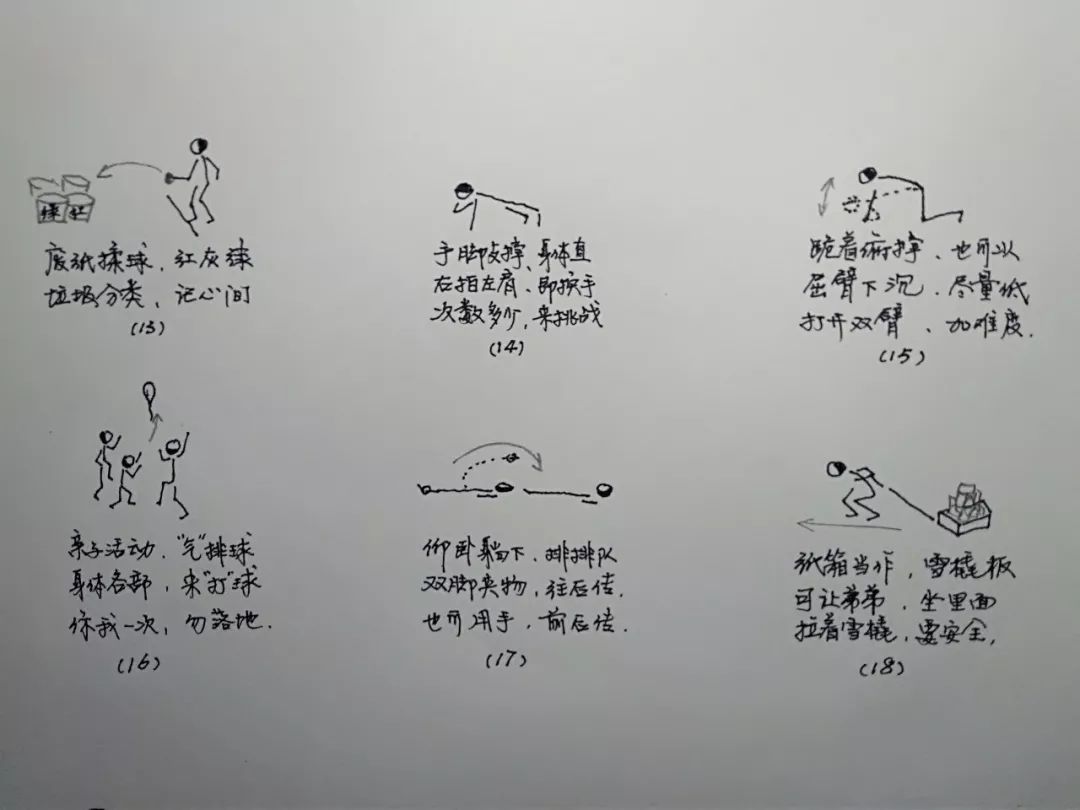 绿 红
废纸揉球，红灰绿
垃圾分类，记心间
(13)
手脚支撑、身体直
右指左肩、即换手
次数多少，来挑战
(14)
跪着俯撑，也可以
屈臂下沉．尽量低
打开双臂、加难度．
(15)
亲子活动．"气"排球
身体各部，来"打"球
你我一次，勿落地．
(16)
仰卧躺下．排排队
双脚夹物，往后传．
也可用手，前后传．
(17)
纸箱当作，雪橇板
可让弟弟，坐里面
拉着雪橇，要安全，
(18)